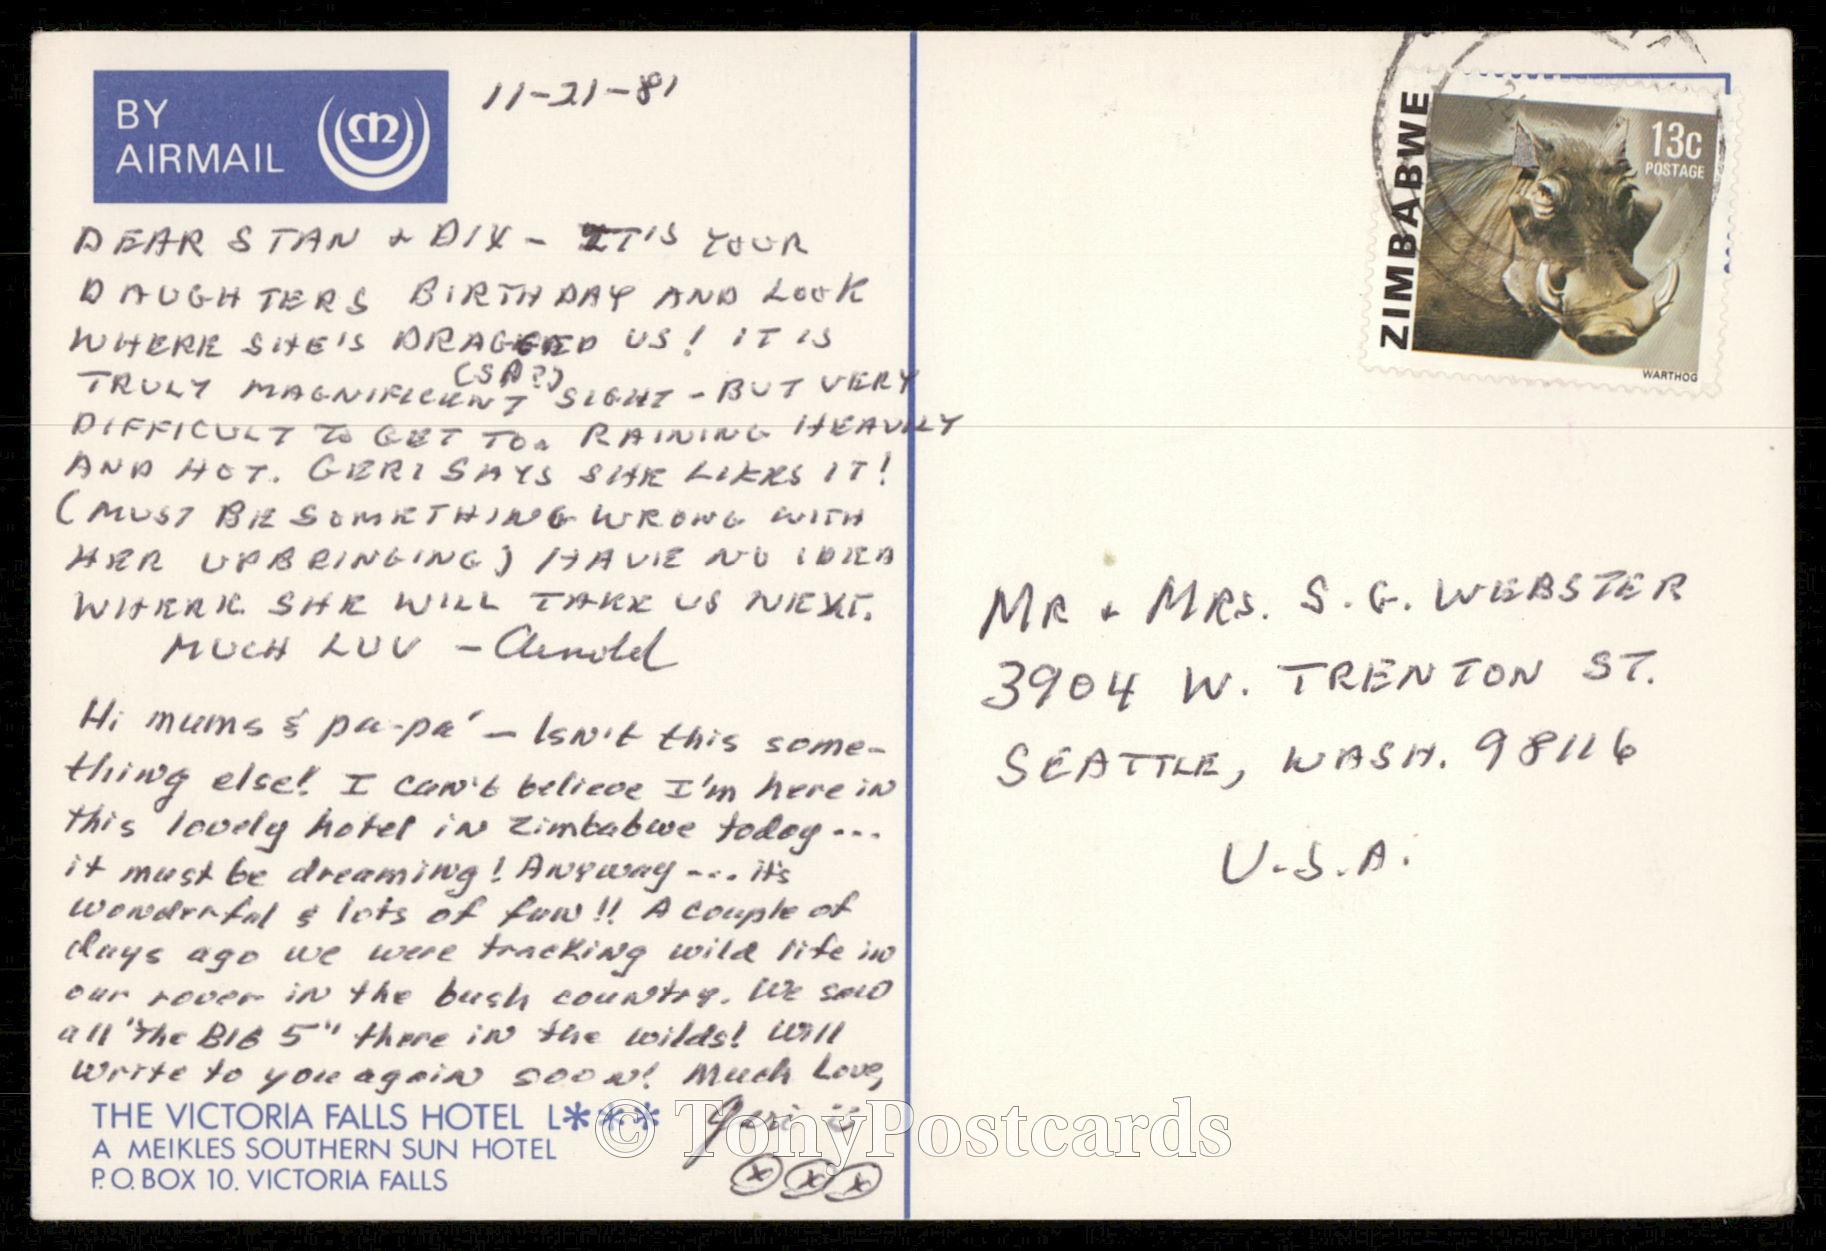 BY
AIRMAIL
11-21-81
DEAR STAN & DIX - IT'S YOUR
DAUGHTERS BIRTHDAY AND LOOK
WHERE SHE'S DRAGGED US! IT IS
TRULY MAGNIFICENT (SP?) SIGHT - BUT VERY
DIFFICULT TO GET TO. RAINING HEAVILY
AND HOT. GERI SAYS SHE LIKES IT!
(MUST BE SOMETHING WRONG WITH
HER UPBRINGING) HAVE NO IDEA
WHERE SHE WILL TAKE US NEXT.
MUCH LUV - Arnold
Hi mums & pa-pa' - Isn't this some-
thing else! I can't believe I'm here in
this lovely hotel in Zimbabwe today...
it must be dreaming! Anyway... it's
wonderful & lots of fun!! A couple of
days ago we were tracking wild life in
our rover in the bush country. We saw
all "The BIG 5" there in the wilds! Will
write to you again soon! Much Love,
Geri
xxx
THE VICTORIA FALLS HOTEL L***
A MEIKLES SOUTHERN SUN HOTEL
P.O. BOX 10. VICTORIA FALLS
ZIMBABWE
13c
POSTAGE
WARTHOG
MR & MRS. S. G. WEBSTER
3904 W. TRENTON ST.
SEATTLE, WASH. 98116
U.S.A.
© TonyPostcards